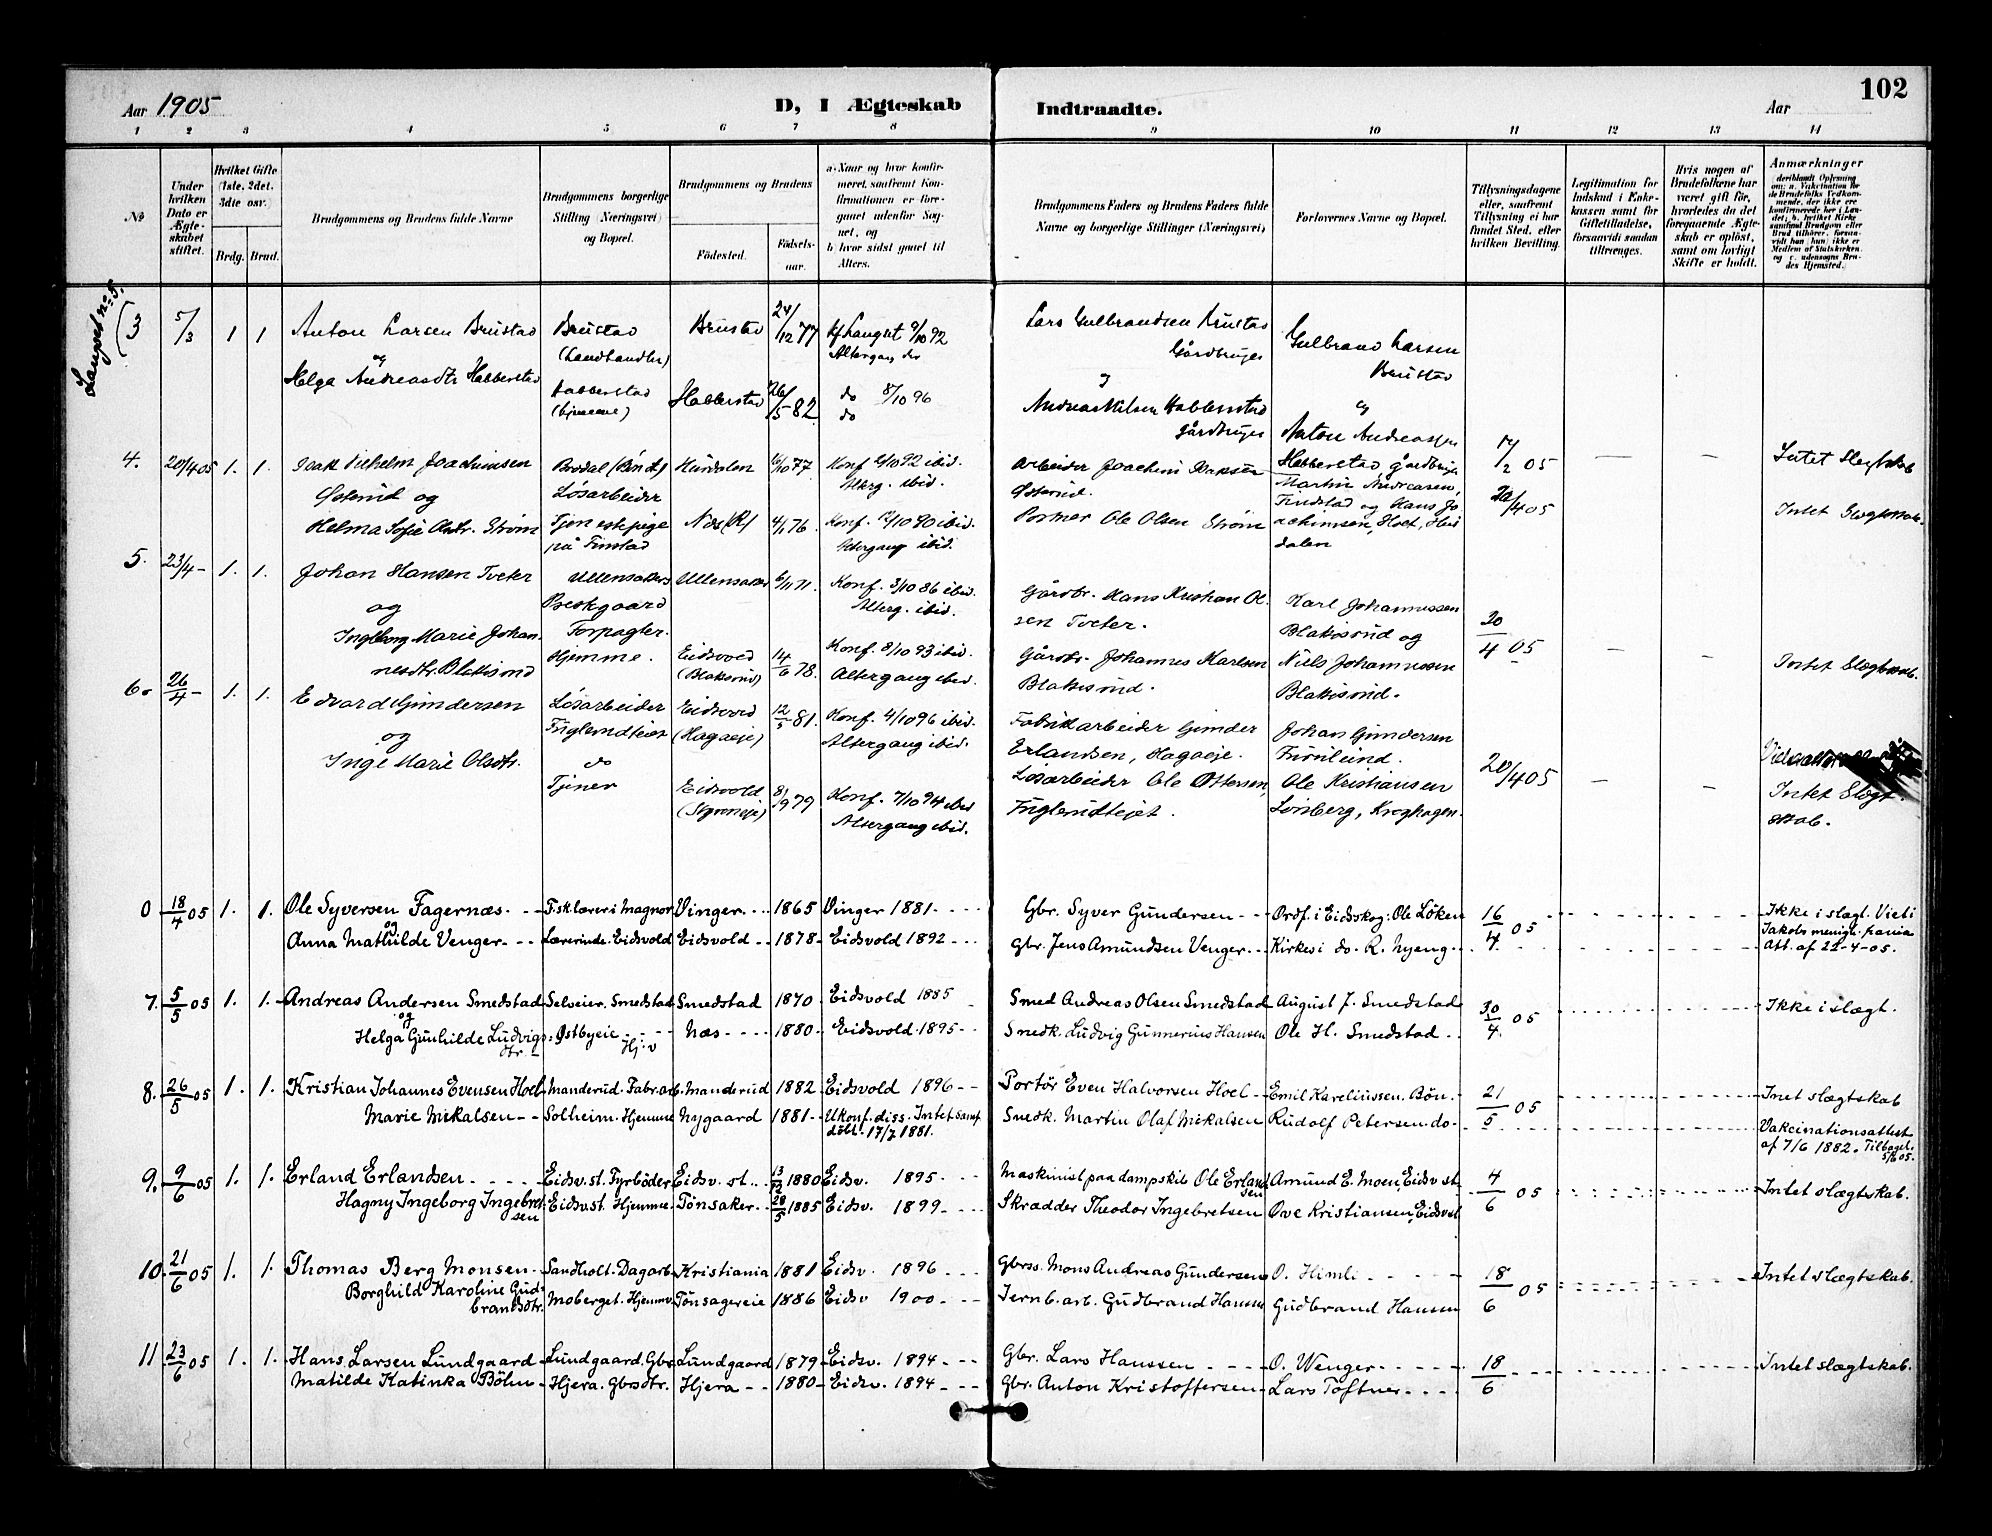 Aar 1905
D, I Ægteskab Indtraadte.
Aar
102
1 2 3 4 5 6 7 8 9 10 11 12 13 14
No
Under hvilken Dato er Ægteskabet stiftet.
Hvilket Gifte (1ste, 2det, 3die osv.)
Brdg. Brud.
Brudgommens og Brudens fulde Navne
Brudgommens borgerlige Stilling (Næringsvei) og Bopæl.
Brudgommens og Brudens
Födested.
Födselsaar.
a. Naar og hvor konfirmeret, saafremt Konfirmationen er foregaaet udenfor Sognet, og
b. hvor sidst gaaet til Alters.
Brudgommens Faders og Brudens Faders fulde Navne og borgerlige Stillinger (Næringsvei)
Forlovernes Navne og Bopæl.
Tillysningsdagene eller, saafremt Tillysning ei har fundet Sted, efter hvilken Bevilling.
Legitimation for Indskud i Enkekassen samt for Giftetilladelse, forsaavidt saadan tiltrænges.
Hvis nogen af Brudefolkene har været gift för, hvorledes da det foregaaende Ægteskab er oplöst, samt om lovligt Skifte er holdt.
Anmærkninger
Langset no 5.
(3 5/3 1 1 Anton Larsen Brustad Brustad (Landhandler) Brustad 24/12 77 Kf. Langset 9/10 92 Altergang do Lars Gulbrandsen Brustad Gårdbruger Gulbrand Larsen Brustad
og
Helga Andreasdtr Habberstad Habberstad (hjemme) Habberstad 26/5 82 do 8/10 96 do Andreas Nilsen Habberstad gårdbruger og Anton Andreassen Habberstad, gårdbruger
4. 20/4 05 1. 1. Isak Vilhelm Joachimsen Østerud og Brodal (Bön St.) Løsarbeider Hurdalen 16/10 77 Konf. 2/10 92 ibid. Alterg. ibid. Arbeider Joachim Isaksen Østerud. Martin Andreasen, Findstad og Hans Joachimsen, Hoel, Hurdalen 12/2 05 — — Intet Slegtskab
Helma Sofie Olsdtr. Strøm Tjenestepige på Finstad Næs (R) 4/1 76. Konf. 12/10 90 ibid. Altergang ibid. Portner Ole Olsen Strøm 20/4 05 Intet Slegtskab.
5. 23/4 - 1. 1. Johan Hansen Tveter Ullensakers Prestgaard Forpagter. Ullensaker 6/11 71. Konf. 3/10 86 ibid. Alterg. ibid. Gårdbr. Hans Kristian Olsen Tveter. Karl Johannessen Blakisrud og 20/4 05 — — Intet Slegtskab.
og
Ingeborg Marie Johannesdtr. Blakisrud Hjemme. Eidsvold (Blakisrud) 14/6 78. Konf. 8/10 93 ibid. Altergang ibid. Gårdbr. Johannes Karlsen Blakisrud. Niels Johannessen Blakisrud.
6. 26/4 - 1. 1. Edvard Gundersen Løsarbeider Fuglerudteiet Eidsvold (Hagaeje) 12/5 81. Konf. 4/10 96 ibid. Altergang ibid. Fabrikarbeider Gunder Erlandsen, Hagaeje. Johan Gundersen Furulund. 20/4 05 — —
og
Inge Marie Olsdtr. do Tjener Eidsvold 8/9 79 Konf. 7/10 94 ibid Altergang ibid. Løsarbeider Ole Ottersen, Fuglerudtejet. Ole Kristiansen Lönberg, Kroghagen. Intet Slegtskab.
0 18/4 05 1. 1. Ole Syversen Fagernæs. F.sk.lærer i Magnor Vinger. 1865 Vinger 1881. Gbr. Syver Gundersen Ordf. i Eidskog: Ole Löken 16/4 05 Ikke i slægt. Viet i
og
Anna Mathilde Venger Lærerinde. Eidsvold Eidsvold 1878 Eidsvold 1892 Gbr. Jens Amundsen Venger Kirkes i do. R. Nyeng Jakobs menigh. Att. af 22-4-05.
7. 5/5 05 1. 1. Andreas Andersen Smedstad Selveier. Smedstad Smedstad 1870 Eidsvold 1885 Smed Andreas Olsen Smedstad August J. Smedstad 30/4 05 Ikke i slægt.
og
Helga Gunhilde Ludvigsdtr. Østbyeie Hj:v Næs 1880 Eidsvold 1895 Snedk. Ludvig Gunnerius Hansen Ole H. Smedstad
8. 26/5 05 1. 1. Kristian Johannes Evensen Hoel Manderud. Fabr.arb. Manderud 1882 Eidsvold 1896 Portør Even Halvorsen Hoel Emil Kareliussen. Bön. 21/5 05 Inet slægtskab
Marie Mikalsen Solheim. Hjemme Nygaard 1881 Ukonf. diss. døbt. 17/7 1881. Snedk. Martin Olaf Mikalsen Rudolf Petersen do Vakcinationsattest af 7/6 1882. Tilbaget. 5/6 05.
9. 9/6 05 1. 1. Erland Erlandsen Eidsv. st. Fyrbøder Eidsv. st. 13/12 1880 Eidsv. 1895 Maskinist paa dampskib Ole Erlandsen Amund E. Moen, Eidsv st 4/6 05 Intet slægtskab.
Hagny Ingeborg Ingebretsen Eidsv.st. Hjemme. Tönsaker. 28/5 1885 Eidsv. 1899 Skrædder Theodor Ingebretsen Ove Kristiansen, Eidsv st
10. 21/6 05 1. 1. Thomas Berg Monsen Sandholt. Dagarb. Kristiania 1881 Eidsv. 1896 Gbrss. Mons Andreas Gundersen O. Himli 18/6 05 Intet slægtskab.
Borghild Karoline Gudbrandsdtr. Moberget. Hjemme Tönsagereie 1886 Eidsv 1900 Jernb.arb. Gudbrand Hansen Gudbrand Hansen
11 23/6 05 1. 1. Hans Larsen Lundgaard Lundgaard. Gbr Lundgaard 1879 Eidsv. 1894 Gbr. Lars Hanssen O. Wenger 18/6 Intet slægtskab.
Matilde Katinka Böhn Hjera. Gbrsdtr. Hjera 1880 Eidsv. 1894 Gbr. Anton Kristoffersen Lars Toftner